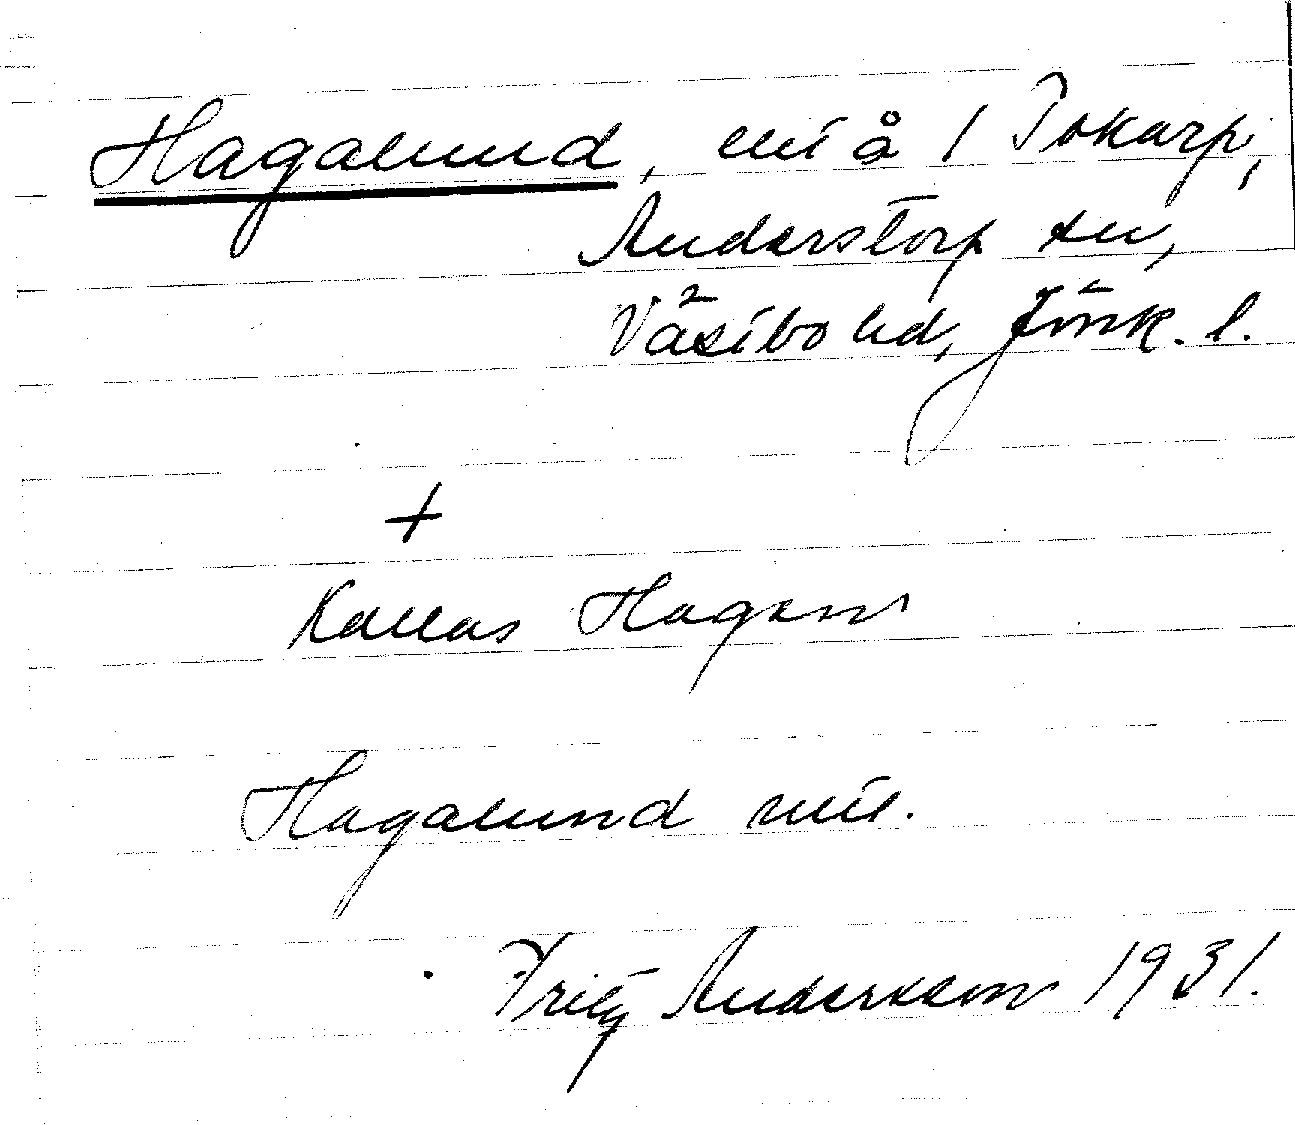 Hagalund, lht å 1 Tokarp,
Anderstorp sn,
Västbo hd, Jönk. l.
+
Kallas Hagen
Hagalund rell.
Fritz Andersson 1931.